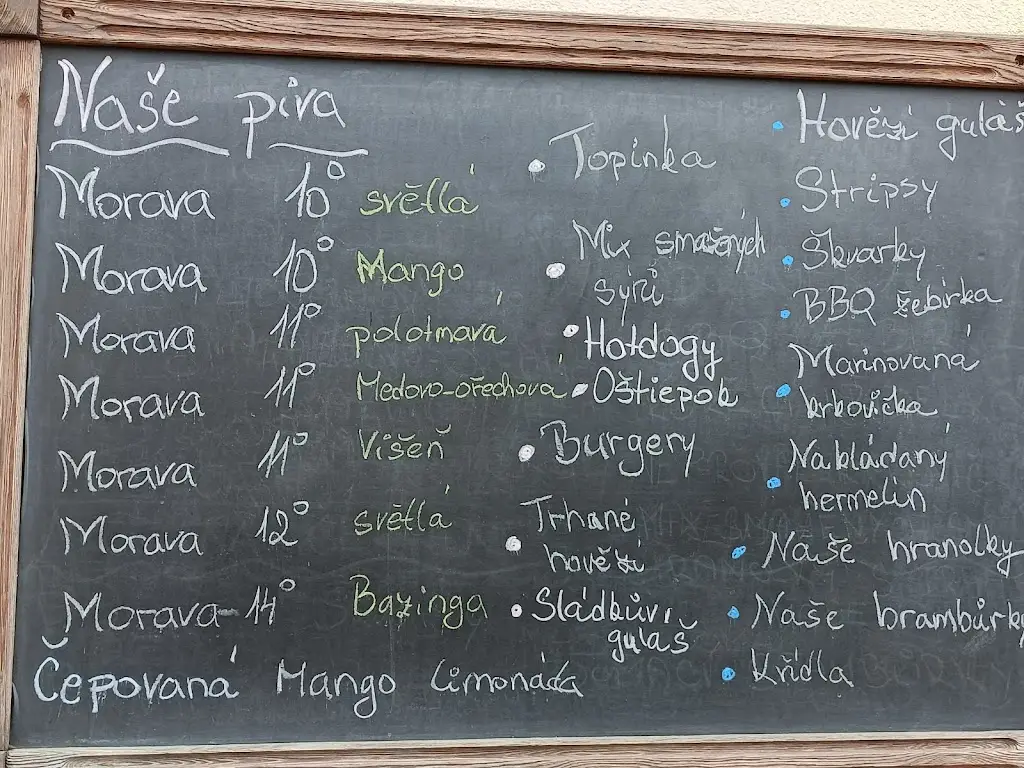 Naše piva
Morava 10° světlá
Morava 10° Mango
Morava 11° polotmavá
Morava 11° Medovo-ořechová
Morava 11° Višeň
Morava 12° světlá
Morava 14° Bazinga
Čepovaná Mango limonáda
Topinka
Mix smažených
sýrů
Hotdogy
Oštiepok
Burgery
Trhané
hovězí
Sládkův
guláš
Hovězí guláš
Stripsy
Škvarky
BBQ žebírka
Marinovaná
krkovička
Nakládaný
hermelín
Naše hranolky
Naše brambůrky
Křídla